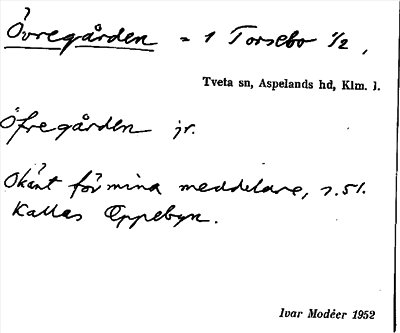 Övregården = 1 Torsebo 1/2,
Tveta sn, Aspelands hd, Klm. l.
Öfregården jr.
Okänt för mina meddelare, s. 51.
Kallas Oppebyn.
Ivar Modéer 1952